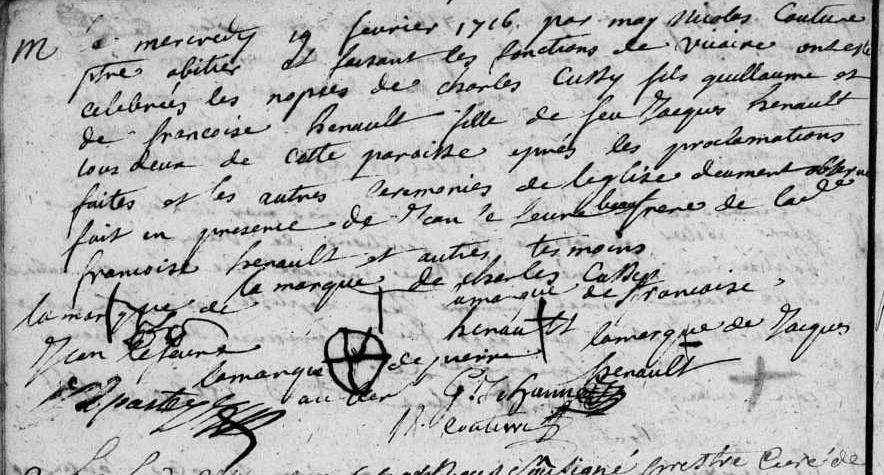 M Le mercredy 19 fevrier 1716 par moy Nicolas Couture
ptre obitier et faisant les fonctions de vicaire ont esté
celebrées les nopses de charles Cussy fils guillaume et
de francoise henault fille de feu Jacques henault
tous deux de cette paroisse aprés les proclamations
faites et les autres ceremonies de leglise deument
fait en presence de Jean le Jeune beaufrere de lade
francoise henault et autres temoins
la marque de la marque de charles Cussy la marque de francoise
Jean le Jeune henault la marque de Jacques
la marque de pierre henault
N. couture